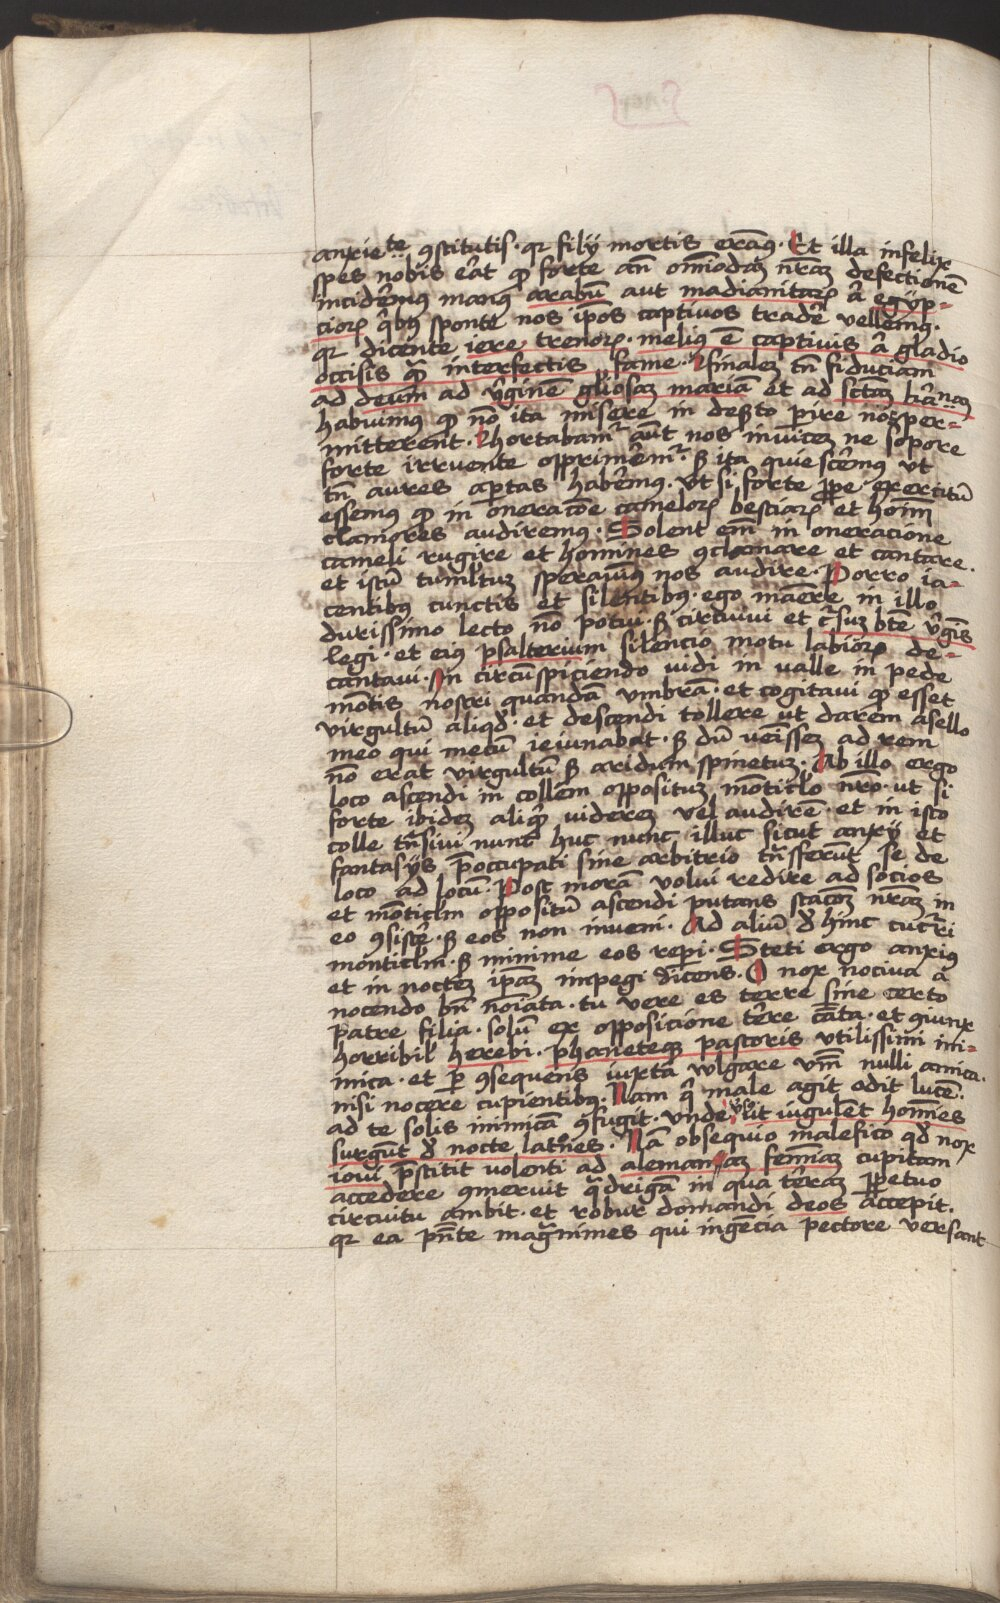 anxiete ꝯstitutis · qꝛ filij mortis eramꝰ · Et illa infelix
spes nobis erat ꝙ forte añ om̄iodaꝫ nr̄aꝫ defectionē
incideremꝰ manꝰ arabū aut madianitaꝝ ā egÿp=
cioꝝ qͥbꝰ sponte nos ip̄os captivos tradē vellemꝰ ·
qꝛ dicente iere trenoꝝ · meliꝰ ē captivis ā gladio
occisis ꝙ̄ interfectis fame · finaleꝫ tn̄ fiduciam
ad deum ad vginē gl̄iosaꝫ mariā et ad sctāꝫ kānaꝫ
habuimꝰ ꝙ nō ita misere in deserto perire nos per=
mitterent · hortabamᷣ aut̄ nos invicem ne sopore
forte irruente opprimeremᷣ · sꝫ ita quiescemꝰ ut
tn̄ aures aptas habemꝰ · ut si forte ꝓpe exercitū
essemꝰ ꝙ in oneracōe cameloꝝ bestiaꝝ et hoīm
clamores audiremꝰ · Solent em̄ in oneracione
cameli rugire et homines ꝯclamare et cantare ·
et istū tumltuꝫ speravimꝰ nos audire · Porro ia=
centibꝰ cunctis et silentibꝰ · ego manere in illo
durissimo lecto nō potui · sꝫ circuivi et cᷣsuꝫ bt̄e vg̅is
legi · et eiꝰ psalterium silencio motu labioꝝ de=
cantavi · In circūspiciendo vidi in valle in pede
mōtis nostri quandā vmbrā · et cogitavi ꝙ esset
virgultū aliqd̄ · et descendi tollere ut darem asello
meo qui mecū ieiunabat · sꝫ dū venisseꝫ ad rem
nō erat virgultū sꝫ aridum spinetuꝫ · Ab illo ergo
loco ascendi in collem oppositūꝫ mōticlo nr̄o · ut si
forte ibideꝫ aliqͥd videreꝫ vel audirē · et in isto
colle tn̄sivi nunc huc nunc illuc sicut anxij et
fantasijs p̄occupati sine arbitrio tn̄sferūt se de
loco ad locū · Post morā volui redire ad socios
et mōticlm oppositū ascendi putans stacōꝫ nr̄aꝫ in
eo ꝯsiste · sꝫ eos non inveni · Ad aliū ꝺ hinc cucᷣri
monticlm · sꝫ minime eos repi · Steti ergo anxiꝰ
et in nocteꝫ ip̄aꝫ inpegi dicens · O nox nociva a
nocendo bn̄ noīata · tu vere es terre sine certo
patre filia · solū ex opposicione tērre cāta · et ꝯiunx
horribil herebi · phaneteqꝫ pastoris utilissimi ini=
mica · et p ꝯsequens iuxta vlgare vm̄ nulli amica ·
nisi nocere cupientibꝰ · Nam qͥ male agit odit lucē ·
ad te solis inimicā ꝯfugit · vnde versꝰ ut iugulēt homīes
surgūt ꝺ nocte latrōes · Nā obsequio malefico qd̄ nox
iovi p̄stitit volenti ad alemanaꝫ femīaꝫ cupitam
accedere ꝯmeruit qͣdrigā in qua tērraꝫ ꝑpetuo
circuitu ambit · et robur domandi deos accepit ·
qꝛ ea pn̄te magͣnimes qui ingēcia pectore versant